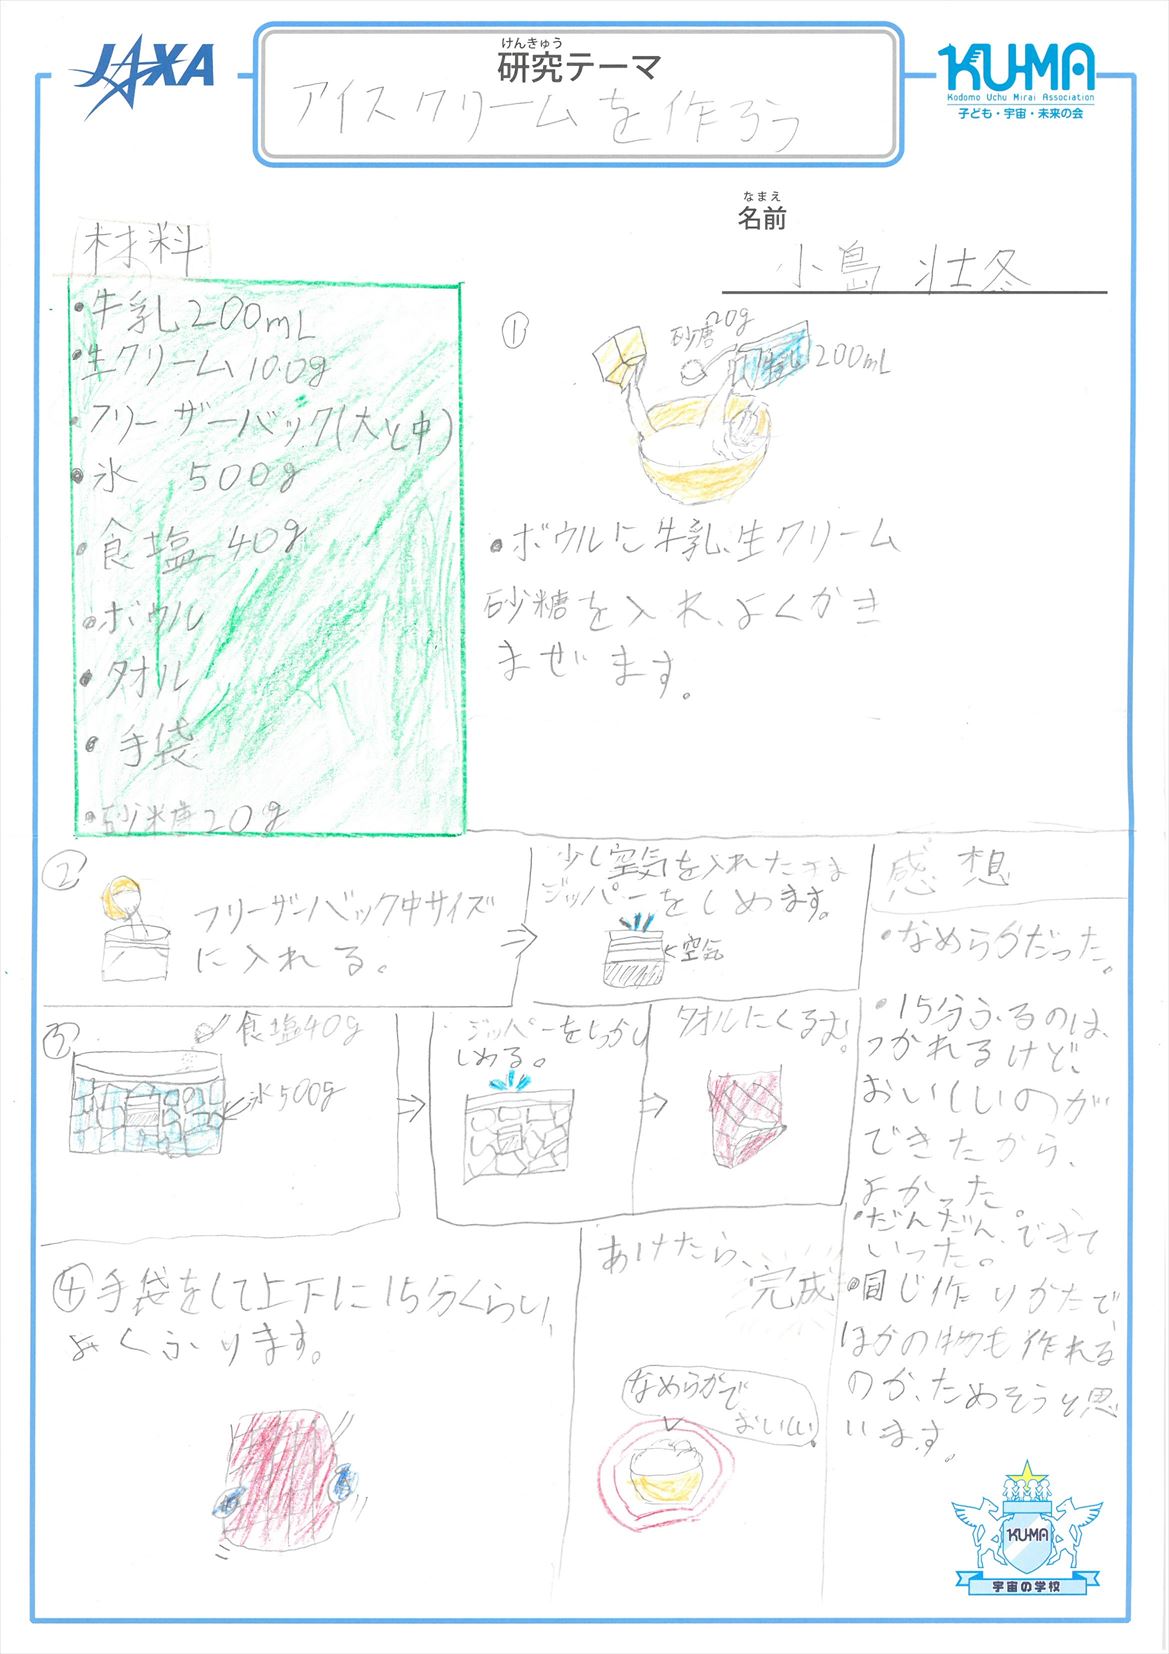 JAXA
けんきゅう
研究テーマ
アイスクリームを作ろう
KU-MA
Kodomo Uchu Mirai Association
子ども・宇宙・未来の会
なまえ
名前
小島 壮冬
材料
・牛乳200mL
・生クリーム100g
・フリーザーバック(大と中)
・氷 500g
・食塩 40g
・ボウル
・タオル
・手袋
・砂糖20g
①
砂糖20g
牛乳 200mL
・ボウルに牛乳、生クリーム
砂糖を入れ、よくかき
まぜます。
②
フリーザーバック中サイズ
に入れる。
少し空気を入れたまま
ジッパーをしめます。
空気
③
食塩40g
氷500g
ジッパーをしっかり
しめる。
タオルにくるむ。
④手袋をして上下に15分くらい、
よくふります。
あけたら、
完成
なめらかで
おいしい。
感想
・なめらかだった。
・15分ふるのは、
つかれるけど、
おいしいのが
できたから、
よかった。
・だんだん、できて
いった。
・同じ作りかたで、
ほかの物も作れる
のか、ためそうと思
います。
KU-MA
宇宙の学校